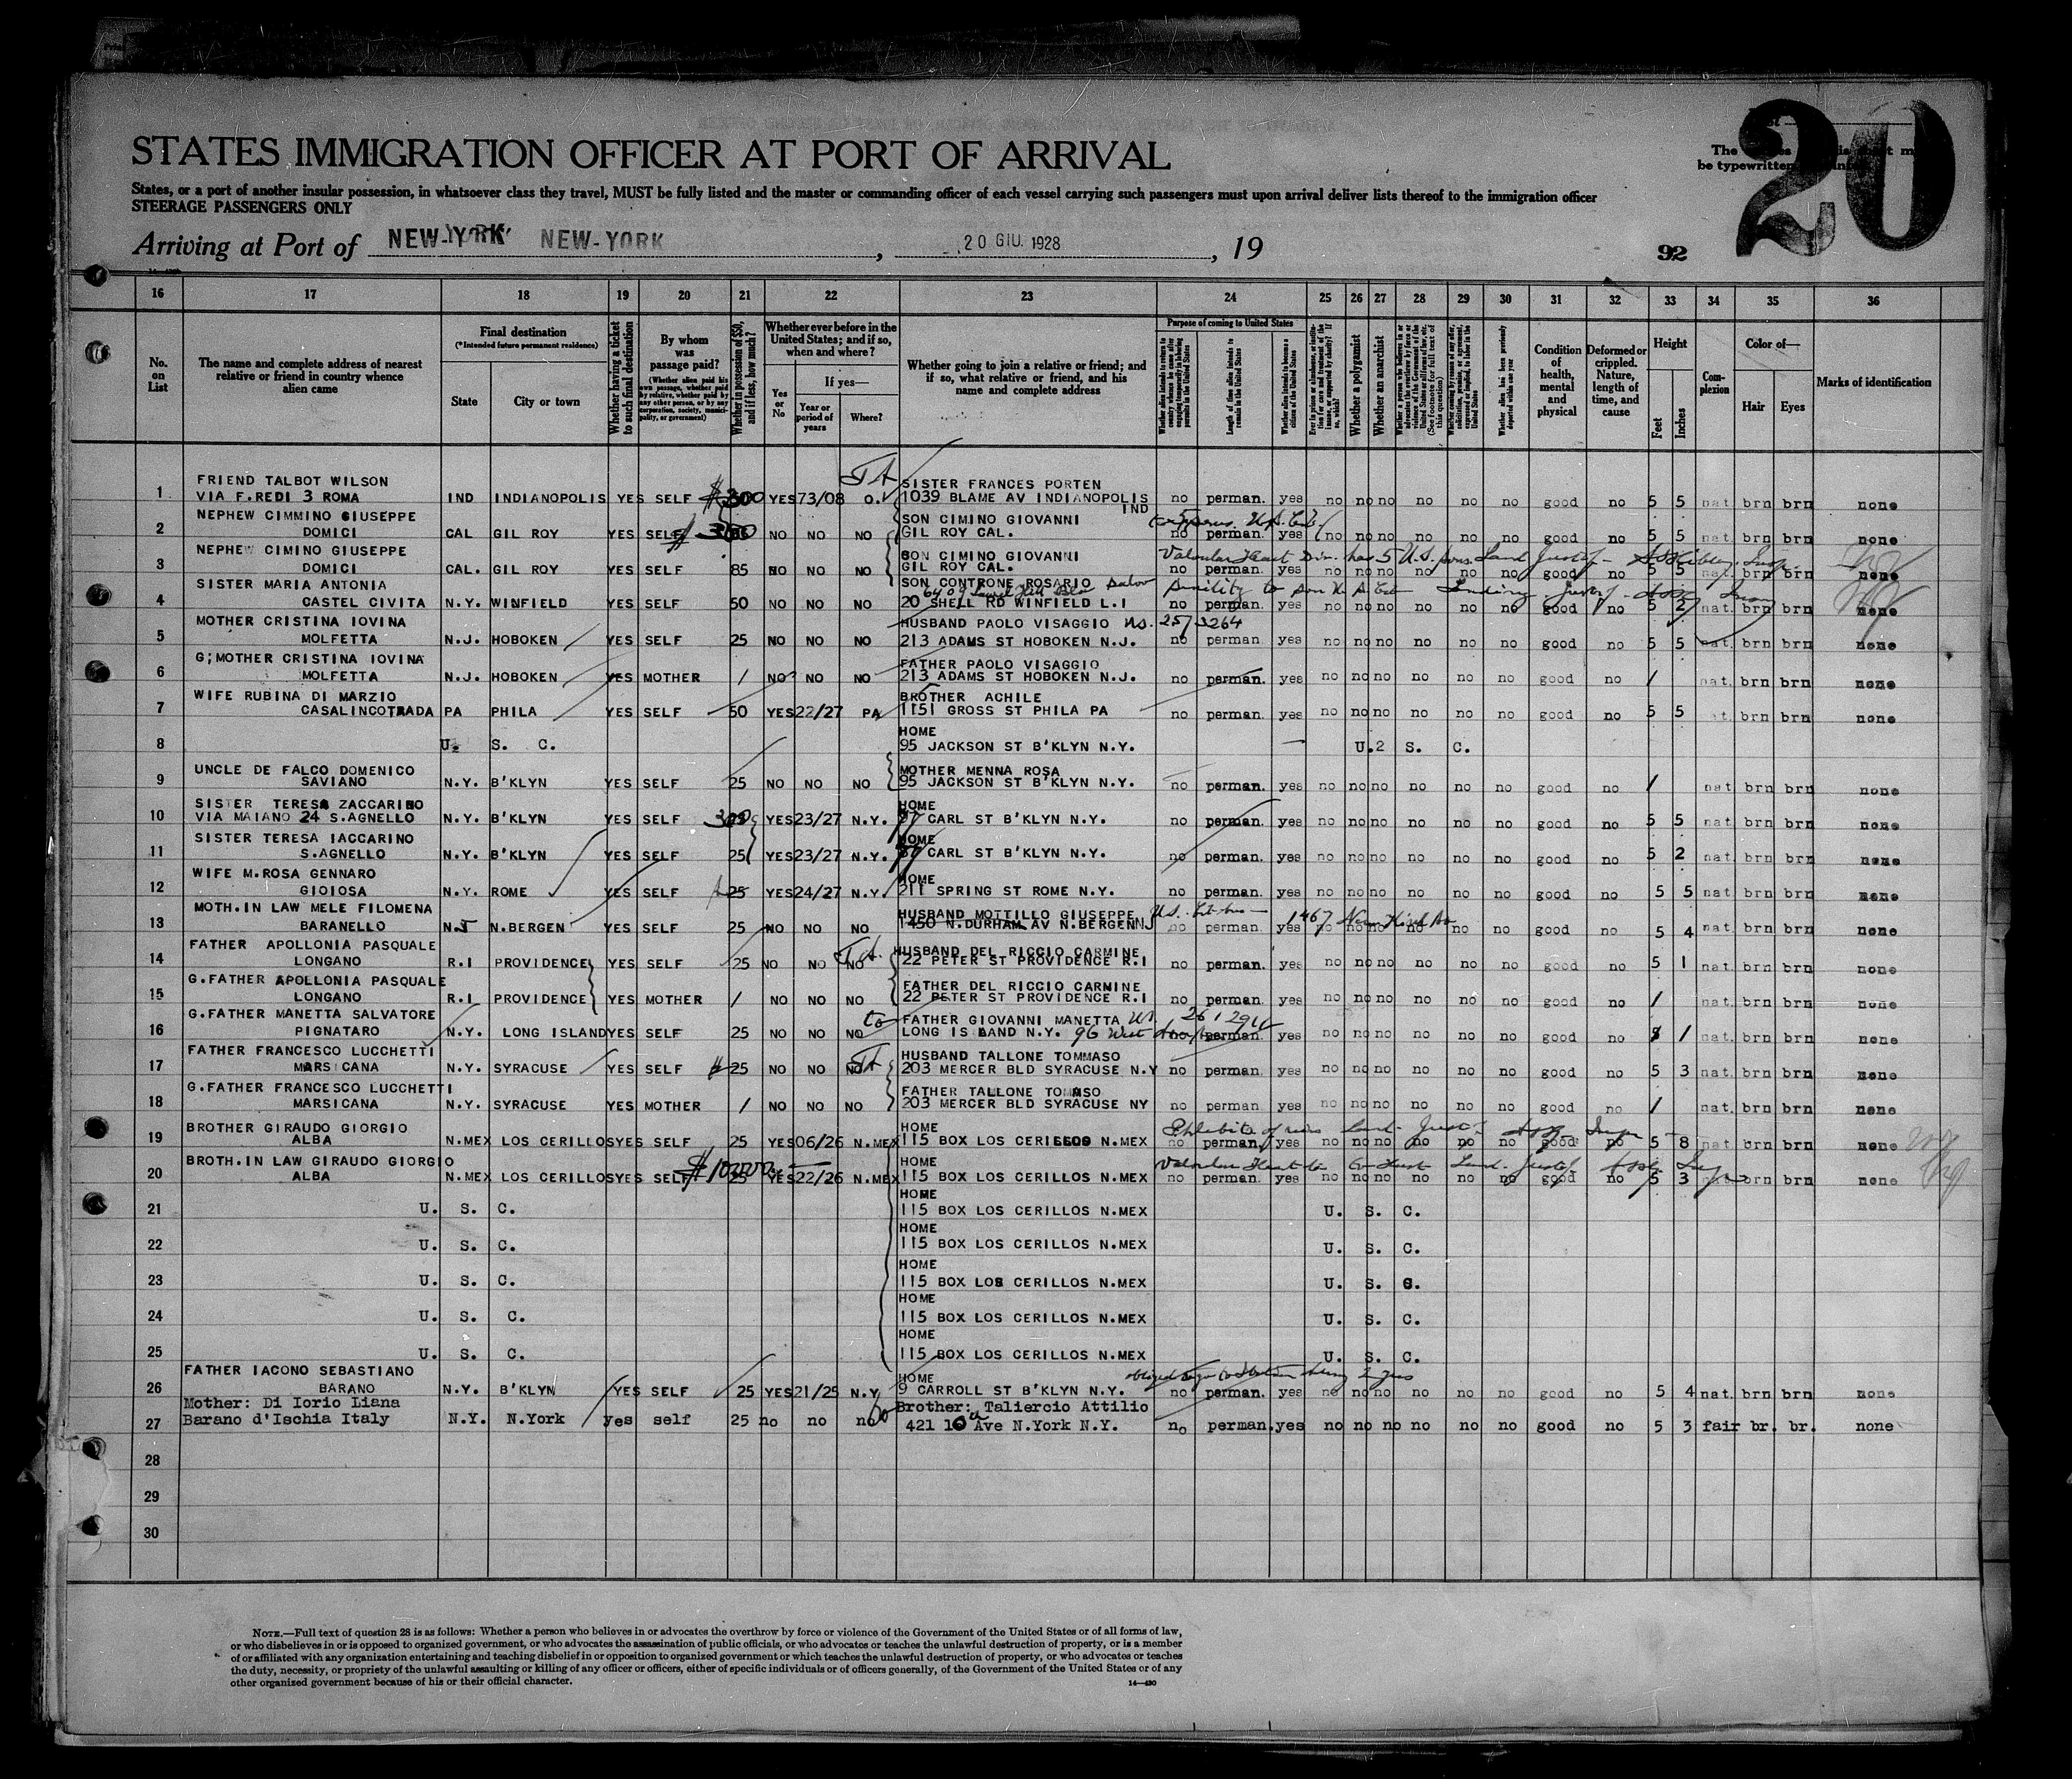 20
STATES IMMIGRATION OFFICER AT PORT OF ARRIVAL
The
be typewritten
States, or a port of another insular possession, in whatsoever class they travel, MUST be fully listed and the master or commanding officer of each vessel carrying such passengers must upon arrival deliver lists thereof to the immigration officer
STEERAGE PASSENGERS ONLY
Arriving at Port of NEW-YORK NEW-YORK , 20 GIU. 1928 , 19
92
16 17 18 19 20 21 22 23 24 25 26 27 28 29 30 31 32 33 34 35 36
No. on List
The name and complete address of nearest relative or friend in country whence alien came
Final destination
(*Intended future permanent residence)
State
City or town
Whether having a ticket to such final destination
By whom was passage paid?
(Whether alien paid his own passage, whether paid by relative, whether paid by any other person, or by any corporation, society, municipality, or government)
Whether in possession of $50, and if less, how much?
Whether ever before in the United States; and if so, when and where?
Yes or No
If yes—
Year or period of years
Where?
Whether going to join a relative or friend; and if so, what relative or friend, and his name and complete address
Purpose of coming to United States
Length of time alien intends to remain in the United States
Whether alien intends to become a citizen of the United States
Whether a polygamist
Whether an anarchist
Condition of health, mental and physical
Deformed or crippled. Nature, length of time, and cause
Height
Feet
Inches
Complexion
Color of—
Hair
Eyes
Marks of identification
1 FRIEND TALBOT WILSON
VIA F.REDI 3 ROMA IND INDIANOPOLIS YES SELF $300 YES 73/08 O. SISTER FRANCES PORTEN
1039 BLAME AV INDIANOPOLIS IND no perman. yes no no no no no no good no 5 5 nat brn brn none
2 NEPHEW CIMMINO GIUSEPPE
DOMICI CAL GIL ROY YES SELF NO NO NO SON CIMINO GIOVANNI
GIL ROY CAL. no perman. yes no no no no no no good no 5 5 nat. brn brn none
3 NEPHEW CIMINO GIUSEPPE
DOMICI CAL. GIL ROY YES SELF 85 NO NO NO SON CIMINO GIOVANNI
GIL ROY CAL. no perman. yes no no no no no no good no 5 5 nat. brn brn none
4 SISTER MARIA ANTONIA
CASTEL CIVITA N.Y. WINFIELD YES SELF 50 NO NO NO SON CONTRONE ROSARIO
20 SHELL RD WINFIELD L.I no perman. yes no no no no no no good no 5 2 nat. brn brn none
5 MOTHER CRISTINA IOVINA
MOLFETTA N.J. HOBOKEN YES SELF 25 NO NO NO HUSBAND PAOLO VISAGGIO
213 ADAMS ST HOBOKEN N.J. no perman yes no no no no no no good no 5 5 nat. brn brn none
6 G;MOTHER CRISTINA IOVINA
MOLFETTA N.J. HOBOKEN YES MOTHER / NO NO NO FATHER PAOLO VISAGGIO
213 ADAMS ST HOBOKEN N.J. no perman. yes no no no no no no good no / nat. brn brn none
7 WIFE RUBINA DI MARZIO
CASALINCOTRADA PA PHILA YES SELF 50 YES 22/27 PA BROTHER ACHILE
1151 GROSS ST PHILA PA no perman. yes no no no no no no good no 5 5 brn brn none
8 U. S. C. HOME
95 JACKSON ST B'KLYN N.Y. U. S. C.
9 UNCLE DE FALCO DOMENICO
SAVIANO N.Y. B'KLYN YES SELF 25 NO NO NO MOTHER MENNA ROSA
95 JACKSON ST B'KLYN N.Y. no perman. yes no no no no no no good no / nat brn brn none
10 SISTER TERESA ZACCARINO
VIA MAIANO 24 S.AGNELLO N.Y. B'KLYN YES SELF YES 23/27 N.Y. HOME
CARL ST B'KLYN N.Y. no perman. yes no no no no no no good no 5 5 nat. brn brn none
11 SISTER TERESA IACCARINO
S.AGNELLO N.Y. B'KLYN YES SELF 25 YES 23/27 N.Y. HOME
CARL ST B'KLYN N.Y. no perman. yes no no no no no no good no 5 2 nat. brn brn none
12 WIFE M.ROSA GENNARO
GIOIOSA N.Y. ROME YES SELF 25 YES 24/27 N.Y. HOME
211 SPRING ST ROME N.Y. no perman. yes no no no no no no good no 5 5 nat brn brn none
13 MOTH.IN LAW MELE FILOMENA
BARANELLO N.J N.BERGEN YES SELF 25 NO NO NO HUSBAND MOTTILLO GIUSEPPE
1450 N.DURHAM AV N.BERGEN NJ no perman yes no no no no no no good no 5 4 nat. brn brn none
14 FATHER APOLLONIA PASQUALE
LONGANO R.I PROVIDENCE YES SELF 25 NO NO NO HUSBAND DEL RICCIO CARMINE
22 PETER ST PROVIDENCE R.I no perman. yes no no no no no no good no 5 1 nat. brn brn none
15 G.FATHER APOLLONIA PASQUALE
LONGANO R.I PROVIDENCE YES MOTHER / NO NO NO FATHER DEL RICCIO CARMINE
22 PETER ST PROVIDENCE R.I no perman. yes no no no no no no good no / nat. brn brn none
16 G.FATHER MANETTA SALVATORE
PIGNATARO N.Y. LONG ISLAND YES SELF 25 NO NO NO FATHER GIOVANNI MANETTA
LONG ISLAND N.Y. 96 West perman. yes no no no no no no good no 1 nat. brn brn none
17 FATHER FRANCESCO LUCCHETTI
MARSICANA N.Y. SYRACUSE YES SELF 25 NO NO NO HUSBAND TALLONE TOMMASO
203 MERCER BLD SYRACUSE N.Y no perman. yes no no no no no no good no 5 3 nat. brn brn none
18 G.FATHER FRANCESCO LUCCHETTI
MARSICANA N.Y. SYRACUSE YES MOTHER / NO NO NO FATHER TALLONE TOMMASO
203 MERCER BLD SYRACUSE NY no perman yes no no no no no no good no / nat. brn brn none
19 BROTHER GIRAUDO GIORGIO
ALBA N.MEX LOS CERILLOS YES SELF 25 YES 06/26 N.MEX HOME
115 BOX LOS CERILLOS N.MEX no perman. yes no no no no no no good no 5 8 nat brn brn none
20 BROTH.IN LAW GIRAUDO GIORGIO
ALBA N.MEX LOS CERILLOS YES SELF 25 YES 22/26 N.MEX HOME
115 BOX LOS CERILLOS N.MEX no perman. yes no no no no no no good no 5 3 brn brn none
21 U. S. C. HOME
115 BOX LOS CERILLOS N.MEX U. S. C.
22 U. S. C. HOME
115 BOX LOS CERILLOS N.MEX U. S. C.
23 U. S. C. HOME
115 BOX LOS CERILLOS N.MEX U. S. C.
24 U. S. C. HOME
115 BOX LOS CERILLOS N.MEX U. S. C.
25 U. S. C. HOME
115 BOX LOS CERILLOS N.MEX U. S. C.
26 FATHER IACONO SEBASTIANO
BARANO N.Y. B'KLYN YES SELF 25 YES 21/25 N.Y HOME
9 CARROLL ST B'KLYN N.Y. no perman. yes no no no no no no good no 5 4 nat. brn brn none
27 Mother: Di Iorio Liana
Barano d'Ischia Italy N.Y. N.York yes self 25 no no no Brother: Taliercio Attilio
421 10 Ave N.York N.Y. no perman. yes no no no no no no good no 5 3 fair br. br. none
28
29
30
NOTE.—Full text of question 28 is as follows: Whether a person who believes in or advocates the overthrow by force or violence of the Government of the United States or of all forms of law,
or who disbelieves in or is opposed to organized government, or who advocates the assassination of public officials, or who advocates or teaches the unlawful destruction of property, or is a member
of or affiliated with any organization entertaining and teaching disbelief in or opposition to organized government or which teaches the unlawful destruction of property, or who advocates or teaches
the duty, necessity, or propriety of the unlawful assaulting or killing of any officer or officers, either of specific individuals or of officers generally, of the Government of the United States or of any
other organized government because of his or their official character.
14—430